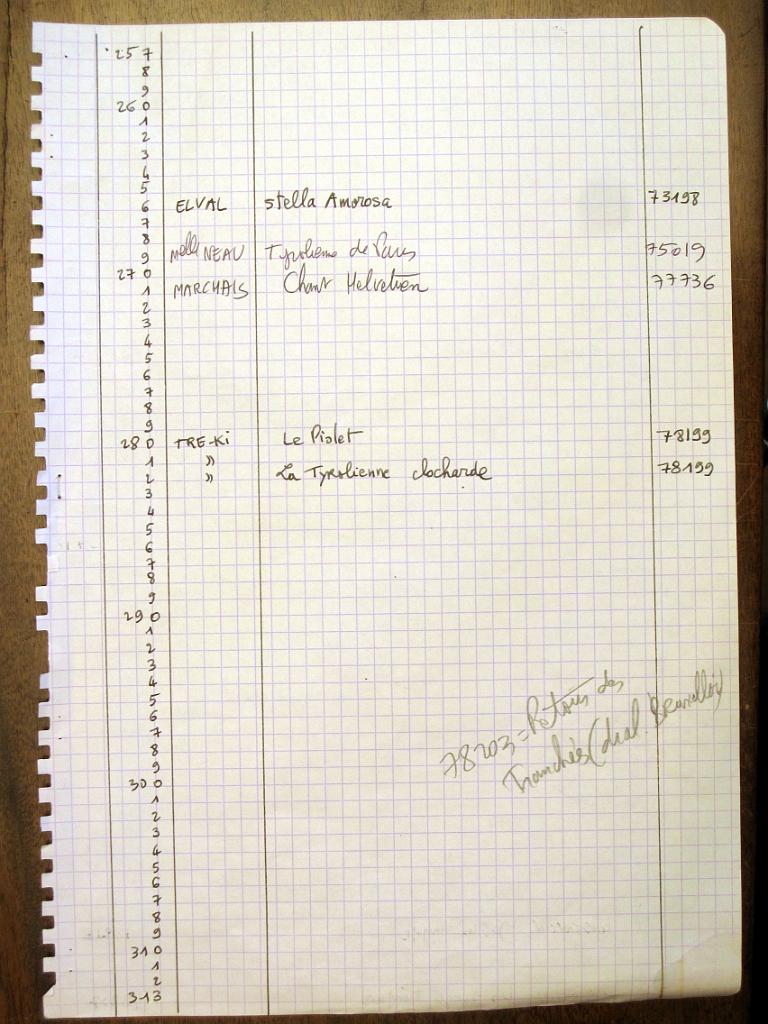 257
8
9
260
1
2
3
4
5
6 ELVAL stella Amorosa 73198
7
8
9 Melle NEAU Tyrolienne de Paris 75019
270
1 MARCHAIS Chant Helvetien 77736
2
3
4
5
6
7
8
9
280 TRE-Ki Le Piolet 78199
1 »
2 » La Tyrolienne clocharde 78199
3
4
5
6
7
8
9
290
1
2
3
4
5
6
7
8
9
300
1
2
3
4
5
6
7
8
9
310
1
2
313
78203 = Retour des
Tranchées (dial. Bruxellois)